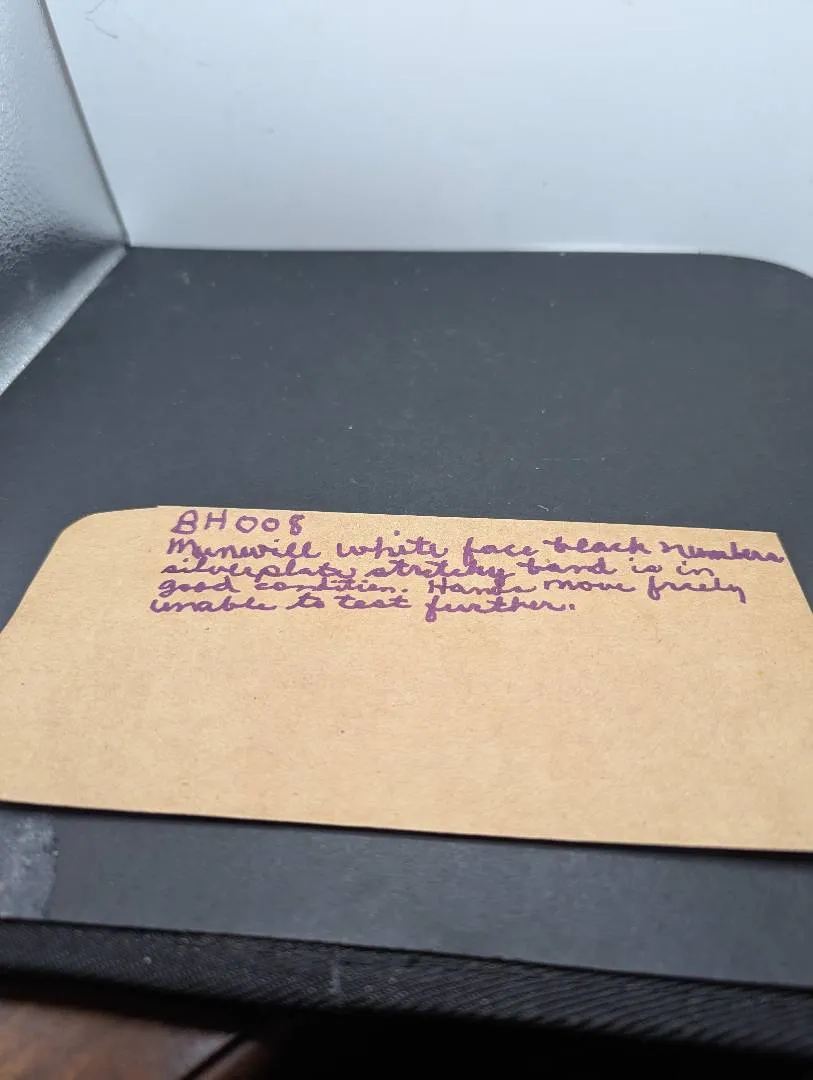 BH008
Munwill white face black numbers
silverplate stretchy band is in
good condition. Hands move freely
unable to test further.